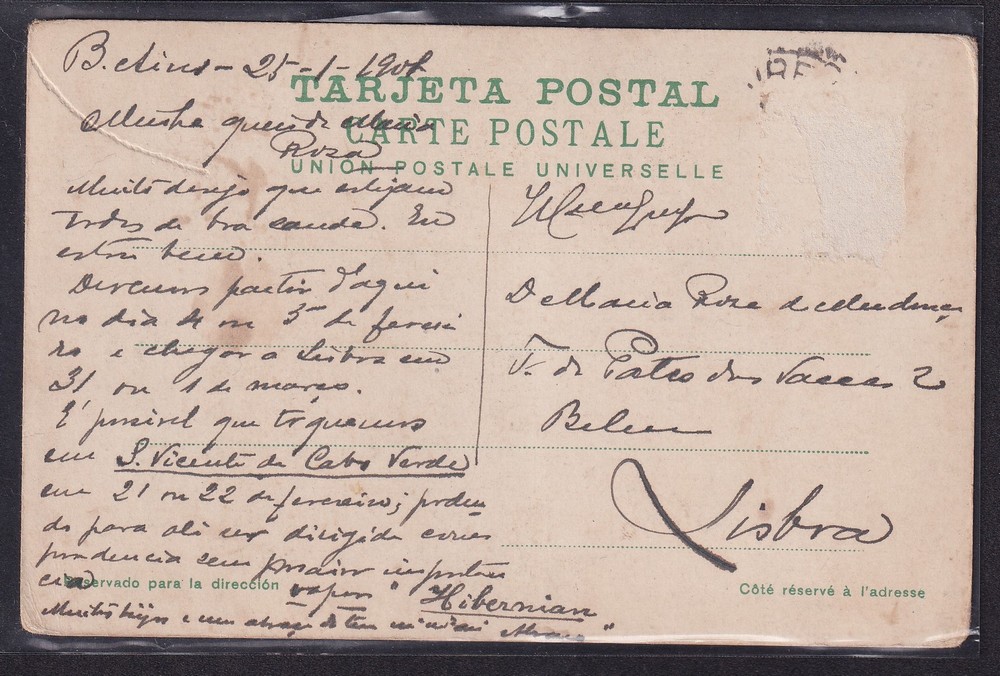 B. Aires - 25-1-190
TARJETA POSTAL
CARTE POSTALE
UNIÓN POSTALE UNIVERSELLE
Minha querida Maria
Roza
Muito desejo que estejam
todos de boa saude. Eu
estou bem.
Devemos partir d'aqui
no dia 4 ou 5 de feverei
ro e chegar a Lisboa em
31 ou 1 de março.
É possivel que toquemos
em S. Vicente de Cabo Verde
em 21 ou 22 de fevereiro; poden
do para ali ser dirigida corres
pondencia sem porisso importan
cia vapor "Hibernian"
Muitos bijos e um abraço do teu
D. Maria Roza de Mendonça
T. do Pateo das Vaccas 2
Belem
Lisboa
Reservado para la dirección
Côté réservé à l'adresse